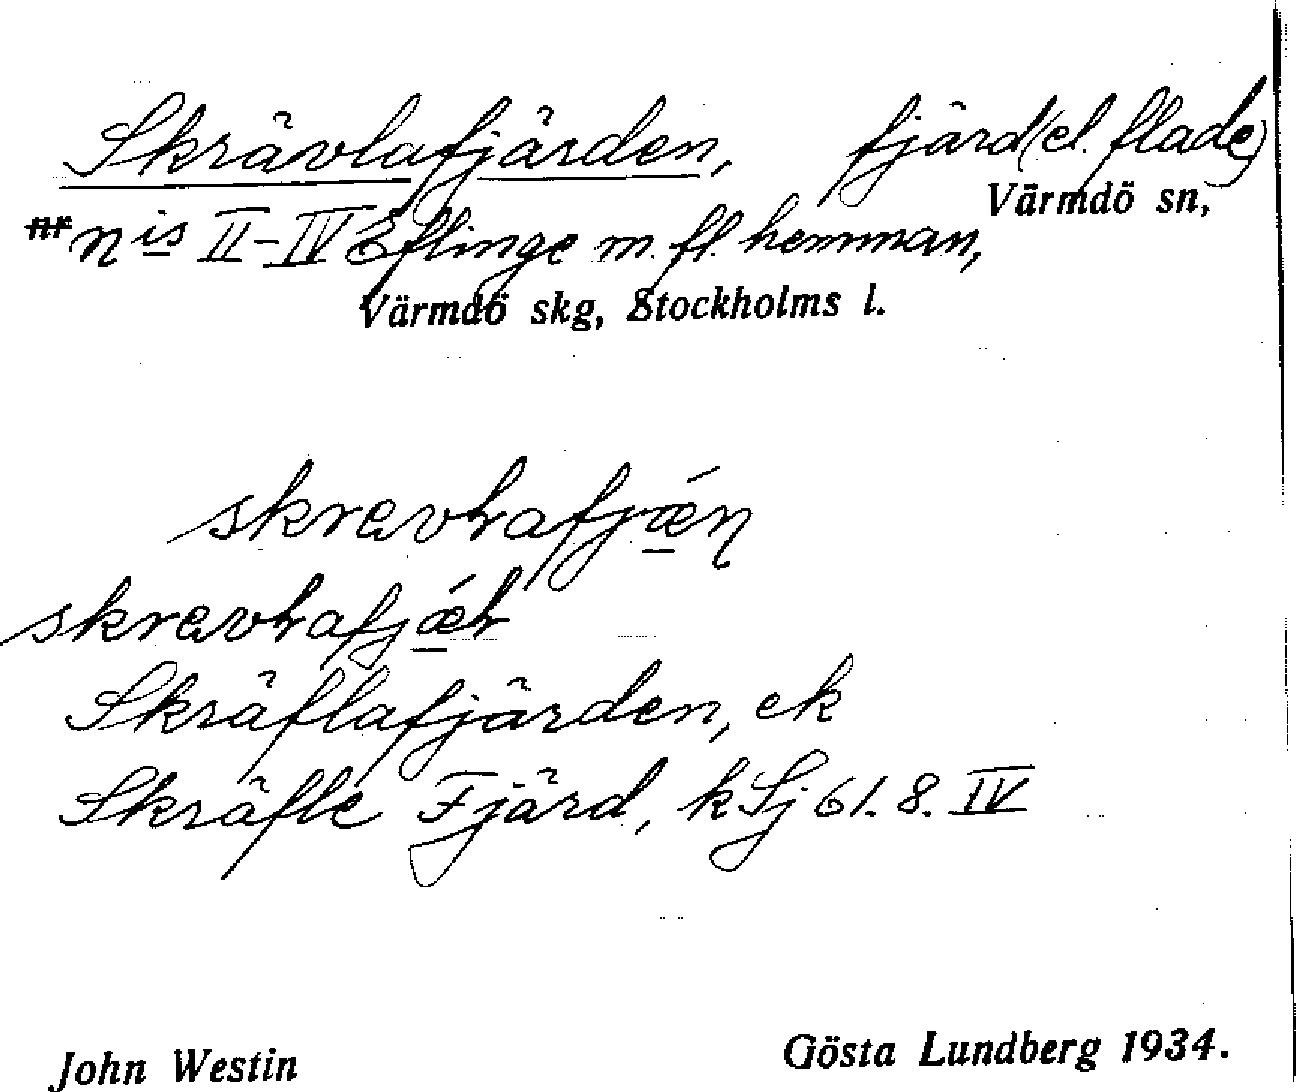 Skrävlafjärden, fjärd (el. flade)
Värmdö sn,
nis II-IV Eflinge m. fl. hemman,
Värmdö skg, Stockholms l.
Skräflafjärden, ek
Skräfle Fjärd, kSj 61. 8. IV
John Westin Gösta Lundberg 1934.